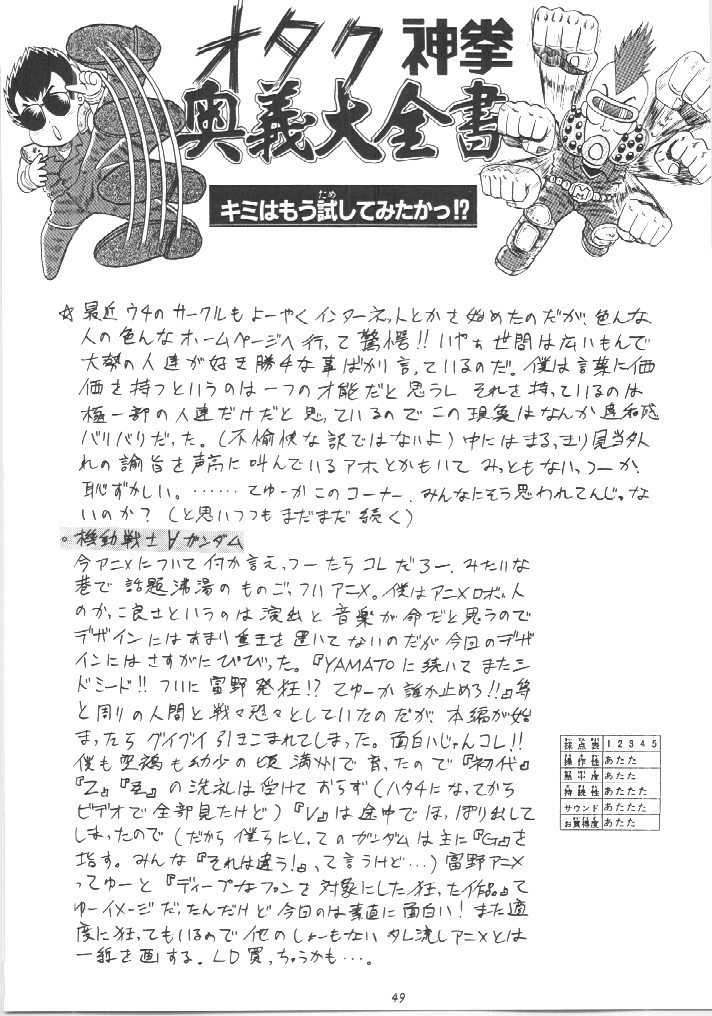 オタク神拳
奥義大全書
キミはもう試してみたかっ!?
ため
☆最近ウチのサークルもよーやくインターネットとかさ始めたのだが、色んな
人の色んなホームページへ行って驚愕!! いやぁ世間は広いもんで
大勢の人達が好き勝手な事ばかり言っているのだ。僕は言葉に価
価を持つというのは一つの才能だと思うし それを持っているのは
極一部の人達だけだと思っているので この現実はなんか違和感
バリバリだった。(不愉快な訳ではないよ)中にはまるっきり見当外
れの論旨を声高に叫んでいるアホとかもいて みっともないっつーか、
恥ずかしい。……てゆーかこのコーナー、みんなにそう思われてんじゃな
いのか?(と思いつつもまだまだ続く)
。機動戦士∀ガンダム
今アニメについて何か言えっつーたらコレだろー、みたいな
巷で話題沸湯のものごっついアニメ。僕はアニメロボットん
のかっこ良さというのは演出と音楽が命だと思うので
デザインにはあまり重王を置いてないのだが今回のデザ
インにはさすがにびびった。『YAMATOに続いてまたシ
ドミード!! ついに富野発狂!? てゆーか誰か止めろ!!』等
と周りの人間と戦々恐々としていたのだが、本編が始
まったらグイグイ引きこまれてしまった。面白いじゃんコレ!!
僕も 鶏も幼少の頃満州で育ったので『初代』
『Z』『ZZ』の洗礼は受けておらず(ハタチになってから
ビデオで全部見たけど)『V』は途中でほっぽり出して
しまったので(だから僕らにとってのガンダムは主に『G』を
指す。みんな『それは違う!』って言うけど…)富野アニメ
ってゆーと『ディープなファンを対象にした狂った作品』て
ゆーイメージだったんだけど今回のは素直に面白い!また適
度に狂ってもいるので他のしょーもないタレ流しアニメとは
一線を画する。LD買っちゃうかも…。
採点表 1 2 3 4 5
操作性 あたた
熱中度 あたたた
持続性 あたたたた
サウンド あたたた
お買得度 あたた
49